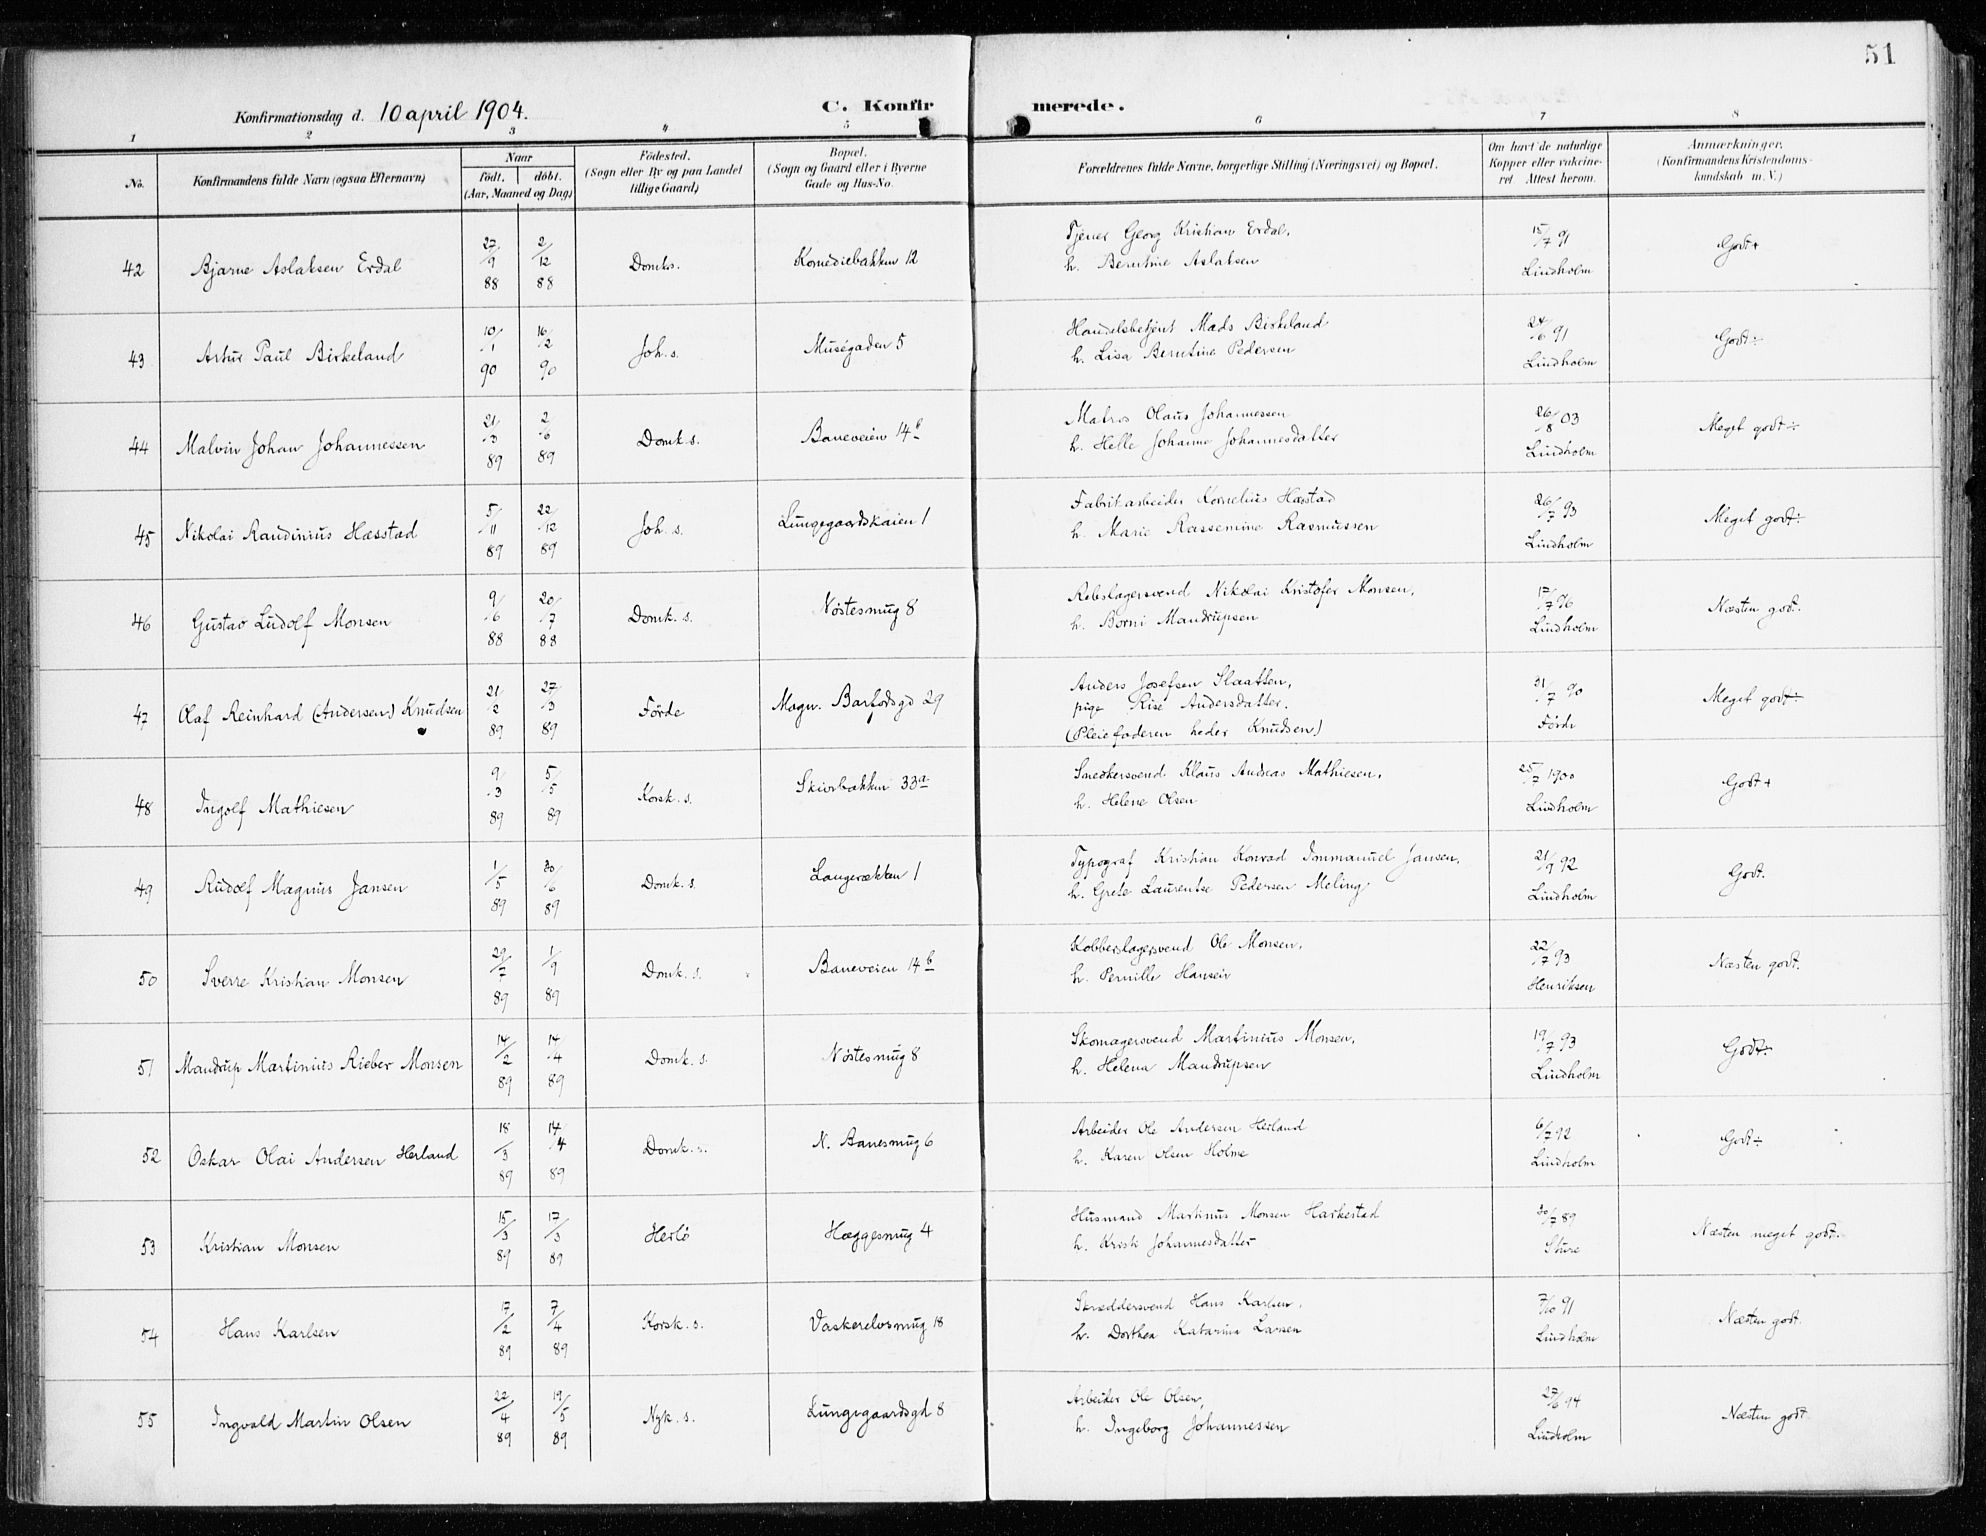 51
Konfirmationsdag d. 10 april 1904.
C. Konfirmerede.
1 2 3 4 5 6 7 8
No. Konfirmandens fulde Navn (ogsaa Efternavn) Naar født. døbt. (Aar, Maaned og Dag) Fødested. (Sogn eller By og paa Landet tillige Gaard) Bopæl. (Sogn og Gaard eller i Byerne Gade og Hus-No. Forældrenes fulde Navne, borgerlige Stilling (Næringsvei) og Bopæl. Om havt de naturlige Kopper eller vakcineret Attest herom. Anmærkninger. (Konfirmandens Kristendomskundskab m. V.)
42 Bjarne Aslaksen Erdal 27/9 88 2/12 88 Domks. Komediebakken 12 Tjener Georg Kristian Erdal, 15/7 91 Godt+
h. Berntine Aslaksen Lindholm
43 Artur Paul Birkeland 10/1 90 16/2 90 Joh. s. Muségaden 5 Handelsbetjent Mads Birkeland 24/6 91 Godt÷
h. Lisa Berntine Pedersen Lindholm
44 Malvin Johan Johannessen 21/3 89 2/6 89 Domk. s. Baneveien 14b Matros Olaus Johannessen 26/8 03 Meget godt÷
h. Helle Johanne Johannesdatter Lindholm
45 Nikolai Raudinius Hæsstad 5/11 89 22/12 89 Joh. s. Lungegaardskaien 1 Fabrikarbeider Kornelius Hæstad 26/7 93 Meget godt÷
h. Marie Rassemine Rasmussen Lindholm
46 Gustav Ludolf Monsen 9/6 88 20/7 88 Domk. s. Nøstesmug 8 Rebslagersvend Nikolai Kristofer Monsen, 17/7 96 Næsten godt.
h. Borni Mandrupsen Lindholm
47 Olaf Reinhard (Andersen) Knudsen 21/2 89 27/3 89 Førde Magn. Barfodsgd 29 Anders Josefsen Slaatten, 31/7 90 Meget godt÷
pige Rise Andersdatter. Førde
(Pleiefaderen heder Knudsen)
48 Ingolf Mathiesen 9/3 89 5/5 89 Korsk. s. Skivebakken 33a Snedkersvend Klaus Andreas Mathiesen, 25/7 1900 Godt+
h. Helene Olsen Lindholm
49 Rudolf Magnus Jansen 1/5 89 30/6 89 Domk. s. Langerækken 1 Typograf Kristian Konrad Immanuel Jansen, 21/9 92 Godt.
h. Grete Laurentse Pedersen Meling Lindholm
50 Sverre Kristian Monsen 29/7 89 1/9 89 Domk. s. Baneveien 14b Kobberslagersvend Ole Monsen, 22/7 93 Næsten godt.
h. Pernille Hansen Henriksen
51 Mandrup Martinius Rieber Monsen 14/2 89 14/4 89 Domk. s. Nøstesmug 8 Skomagersvend Martinius Monsen, 19/7 93 Godt÷
h. Helena Mandrupsen Lindholm
52 Oskar Olai Andersen Herland 18/3 89 14/4 89 Domk. s. N. Banesmug 6 Arbeider Ole Andersen Herland 6/7 92 Godt÷
h. Karen Olsen Holme Lindholm
53 Kristian Monsen 15/3 89 17/3 89 Herlø Hæggesmug 4 Husmand Martinus Monsen Harkestad 30/7 89 Næsten meget godt.
h. Kristi Johannesdatter Sture
54 Hans Karlsen 17/2 89 7/4 89 Korsk. s. Vaskerelvsmug 18 Skræddersvend Hans Karlsen, 7/10 91 Næsten godt.
h. Dorthea Katarina Larsen Lindholm
55 Ingvald Martin Olsen 22/4 89 19/5 89 Nyk. s. Lungegaardsgd 8 Arbeider Ole Olsen, 27/6 94 Næsten godt
h. Ingeborg Johannessen Lindholm